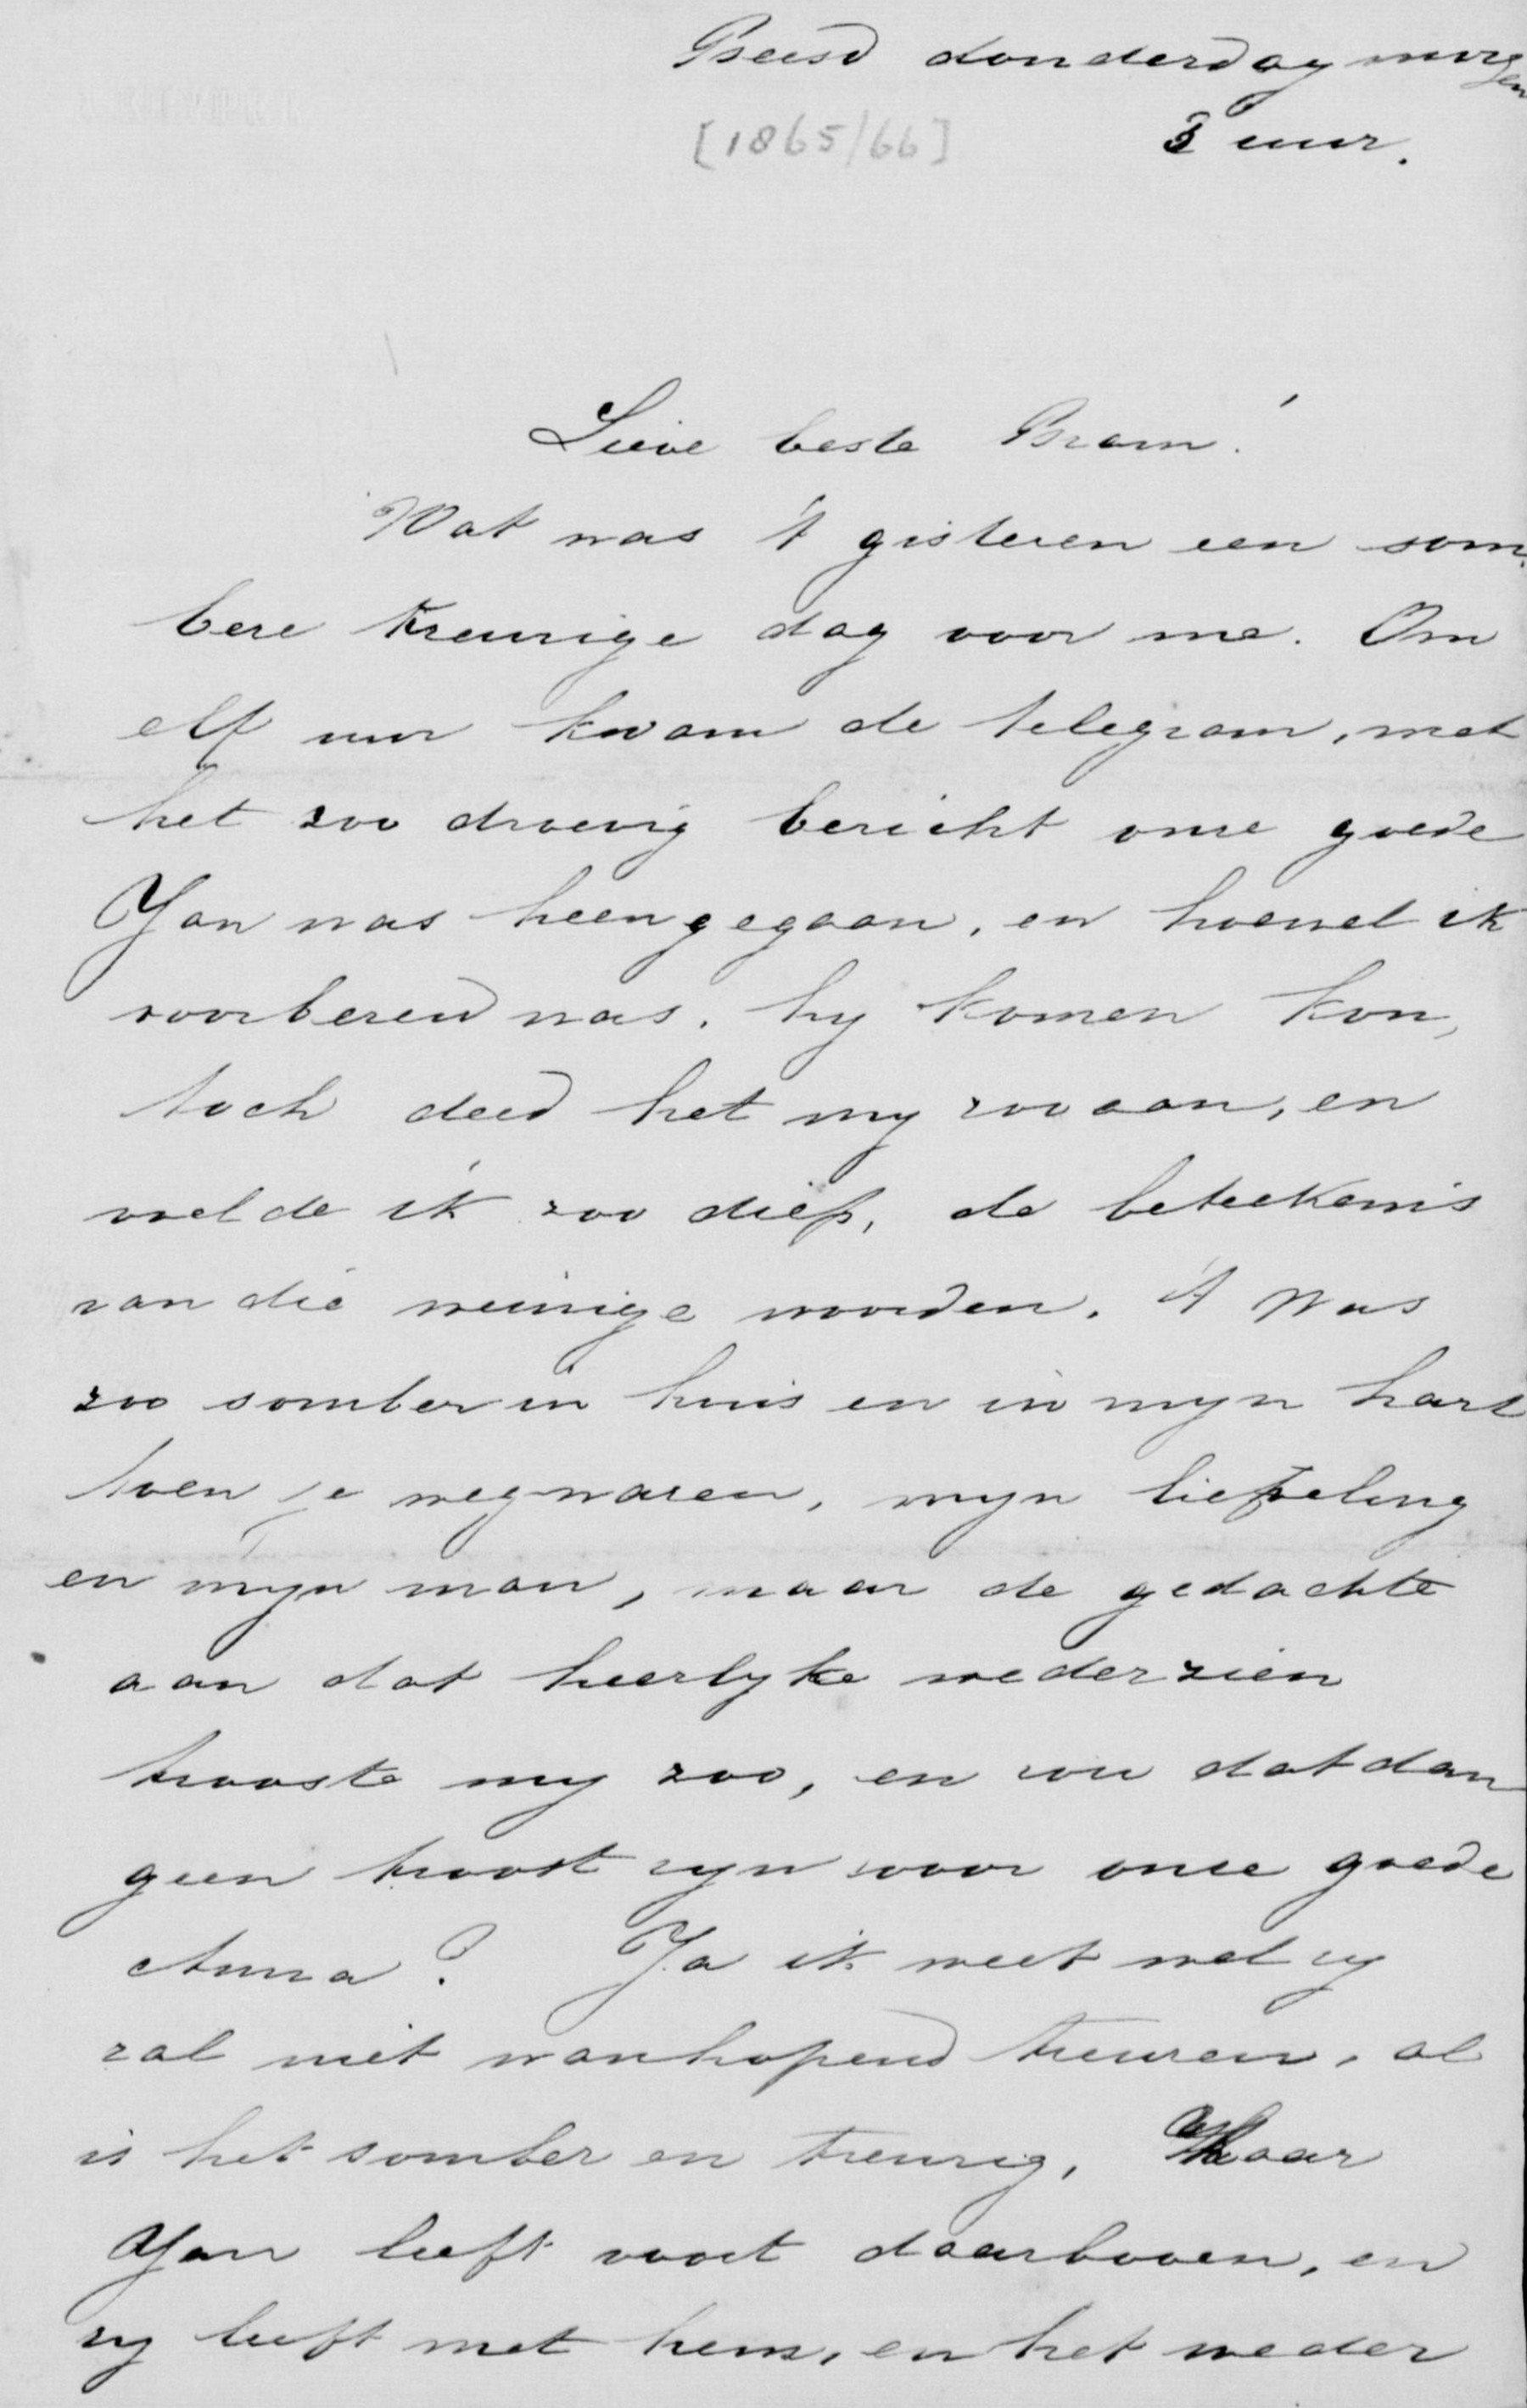 Beesd donderdag morgen
[1865/66] 3 uur.
Lieve beste Bram!
Wat was 't gisteren een som
bere treurige dag voor me. Om
elf uur kwam de telegram, met
het zoo droevig bericht onze goede
Jan was heengegaan, en hoewel ik
voorbereid was, hy komen kon,
toch deed het my zoo aan, en
voelde ik zoo diep, de beteekenis
van die weinige woorden. 't was
zoo somber in huis en in myn hart
toen je weg waren, myn lieveling
en myn man, maar de gedachte
aan dat heerlyke wederzien
trooste my zoo, en zou dat dan
geen troost zyn voor onze goede
Anna? Ja ik weet wel zy
zal niet wanhopend treuren, al
is het somber en treurig, Haar
Jan leeft voort daarboven, en
zy leeft met hem, en het weder